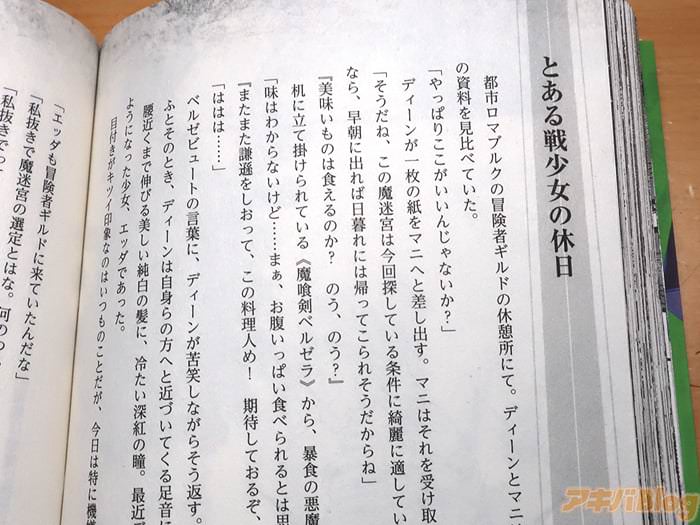 とある戦少女の休日
都市ロマブルクの冒険者ギルドの休憩所にて。ディーンとマニ
の資料を見比べていた。
「やっぱりここがいいんじゃないか?」
ディーンが一枚の紙をマニへと差し出す。マニはそれを受け取
「そうだね、この魔迷宮は今回探している条件に綺麗に適してい
なら、早朝に出れば日暮れには帰ってこられそうだからね」
『美味いものは食えるのか? のう、のう?』
机に立て掛けられている《魔喰剣ベルゼラ》から、暴食の悪魔
「味はわからないけど……まぁ、お腹いっぱい食べられるとは思
『またまた謙遜をしおって、この料理人め! 期待しておるぞ、
「ははは……」
ベルゼビュートの言葉に、ディーンが苦笑しながらそう返す。
ふとそのとき、ディーンは自身らの方へと近づいてくる足音に
腰近くまで伸びる美しい純白の髪に、冷たい深紅の瞳。最近デ
ようになった少女、エッダであった。
目付きがキツイ印象なのはいつものことだが、今日は特に機嫌
「エッダも冒険者ギルドに来ていたんだな」
「私抜きで魔迷宮の選定とはな。何のつ
「私抜きでっ
アキバBlog